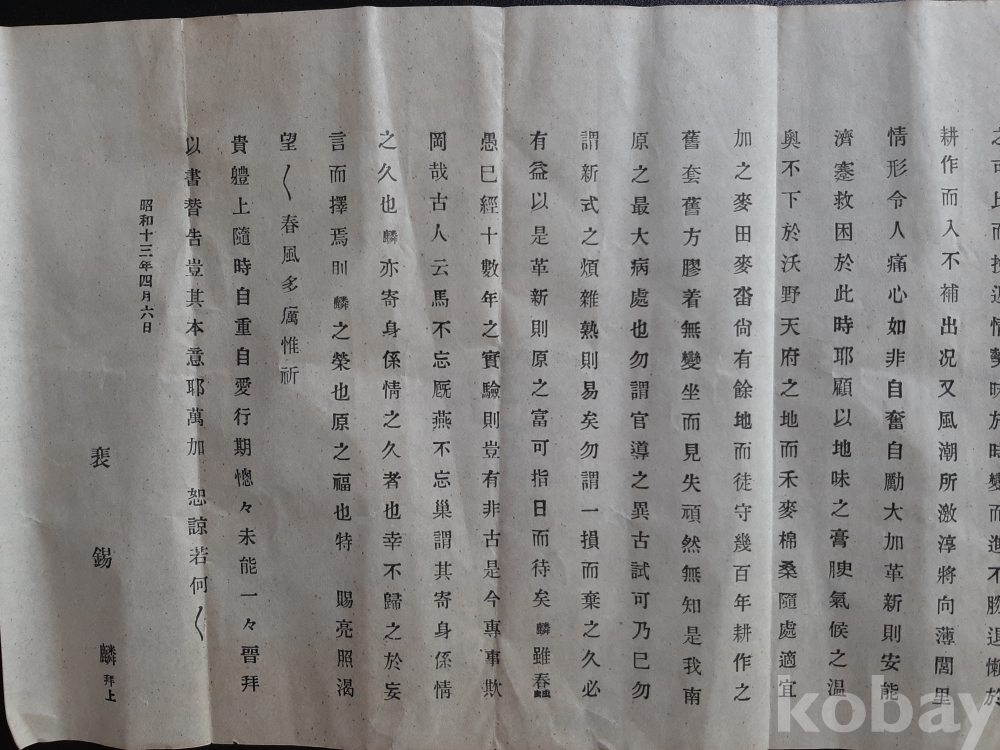 之可比而近情勢昧於時變而進不勝退懶於
耕作而入不補出况又風潮所激淳將向薄閭里
情形令人痛心如非自奮自勵大加革新則安能
濟蹇救困於此時耶顧以地味之膏腴氣候之溫
奧不下於沃野天府之地而禾麥棉桑隨處適宜
加之麥田麥畓尙有餘地而徒守幾百年耕作之
舊套舊方膠着無變坐而見失頑然無知是我南
原之最大病處也勿謂官導之異古試可乃已勿
謂新式之煩雜熟則易矣勿謂一損而棄之久必
有益以是革新則原之富可指日而待矣麟雖蠢
愚已經十數年之實驗則豈有非古是今專事欺
岡哉古人云馬不忘厩燕不忘巢謂其寄身係情
之久也麟亦寄身係情之久者也幸不歸之於妄
言而擇焉則麟之榮也原之福也特 賜亮照渴
望〱春風多厲惟祈
貴軆上隨時自重自愛行期憁々未能一々晉拜
以書替告豈其本意耶萬加 恕諒若何〱
昭和十三年四月六日
裵錫麟拜上
kobay